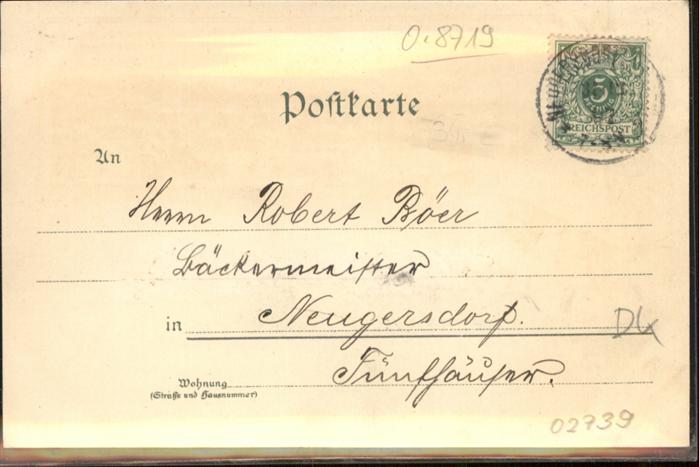 0.8719
5
REICHSPOST
Postkarte
An
Herrn Robert Böer
Bäckermeister
in Neugersdorf.
Fünfhäuser.
Wohnung
(Straße und Hausnummer)
02739